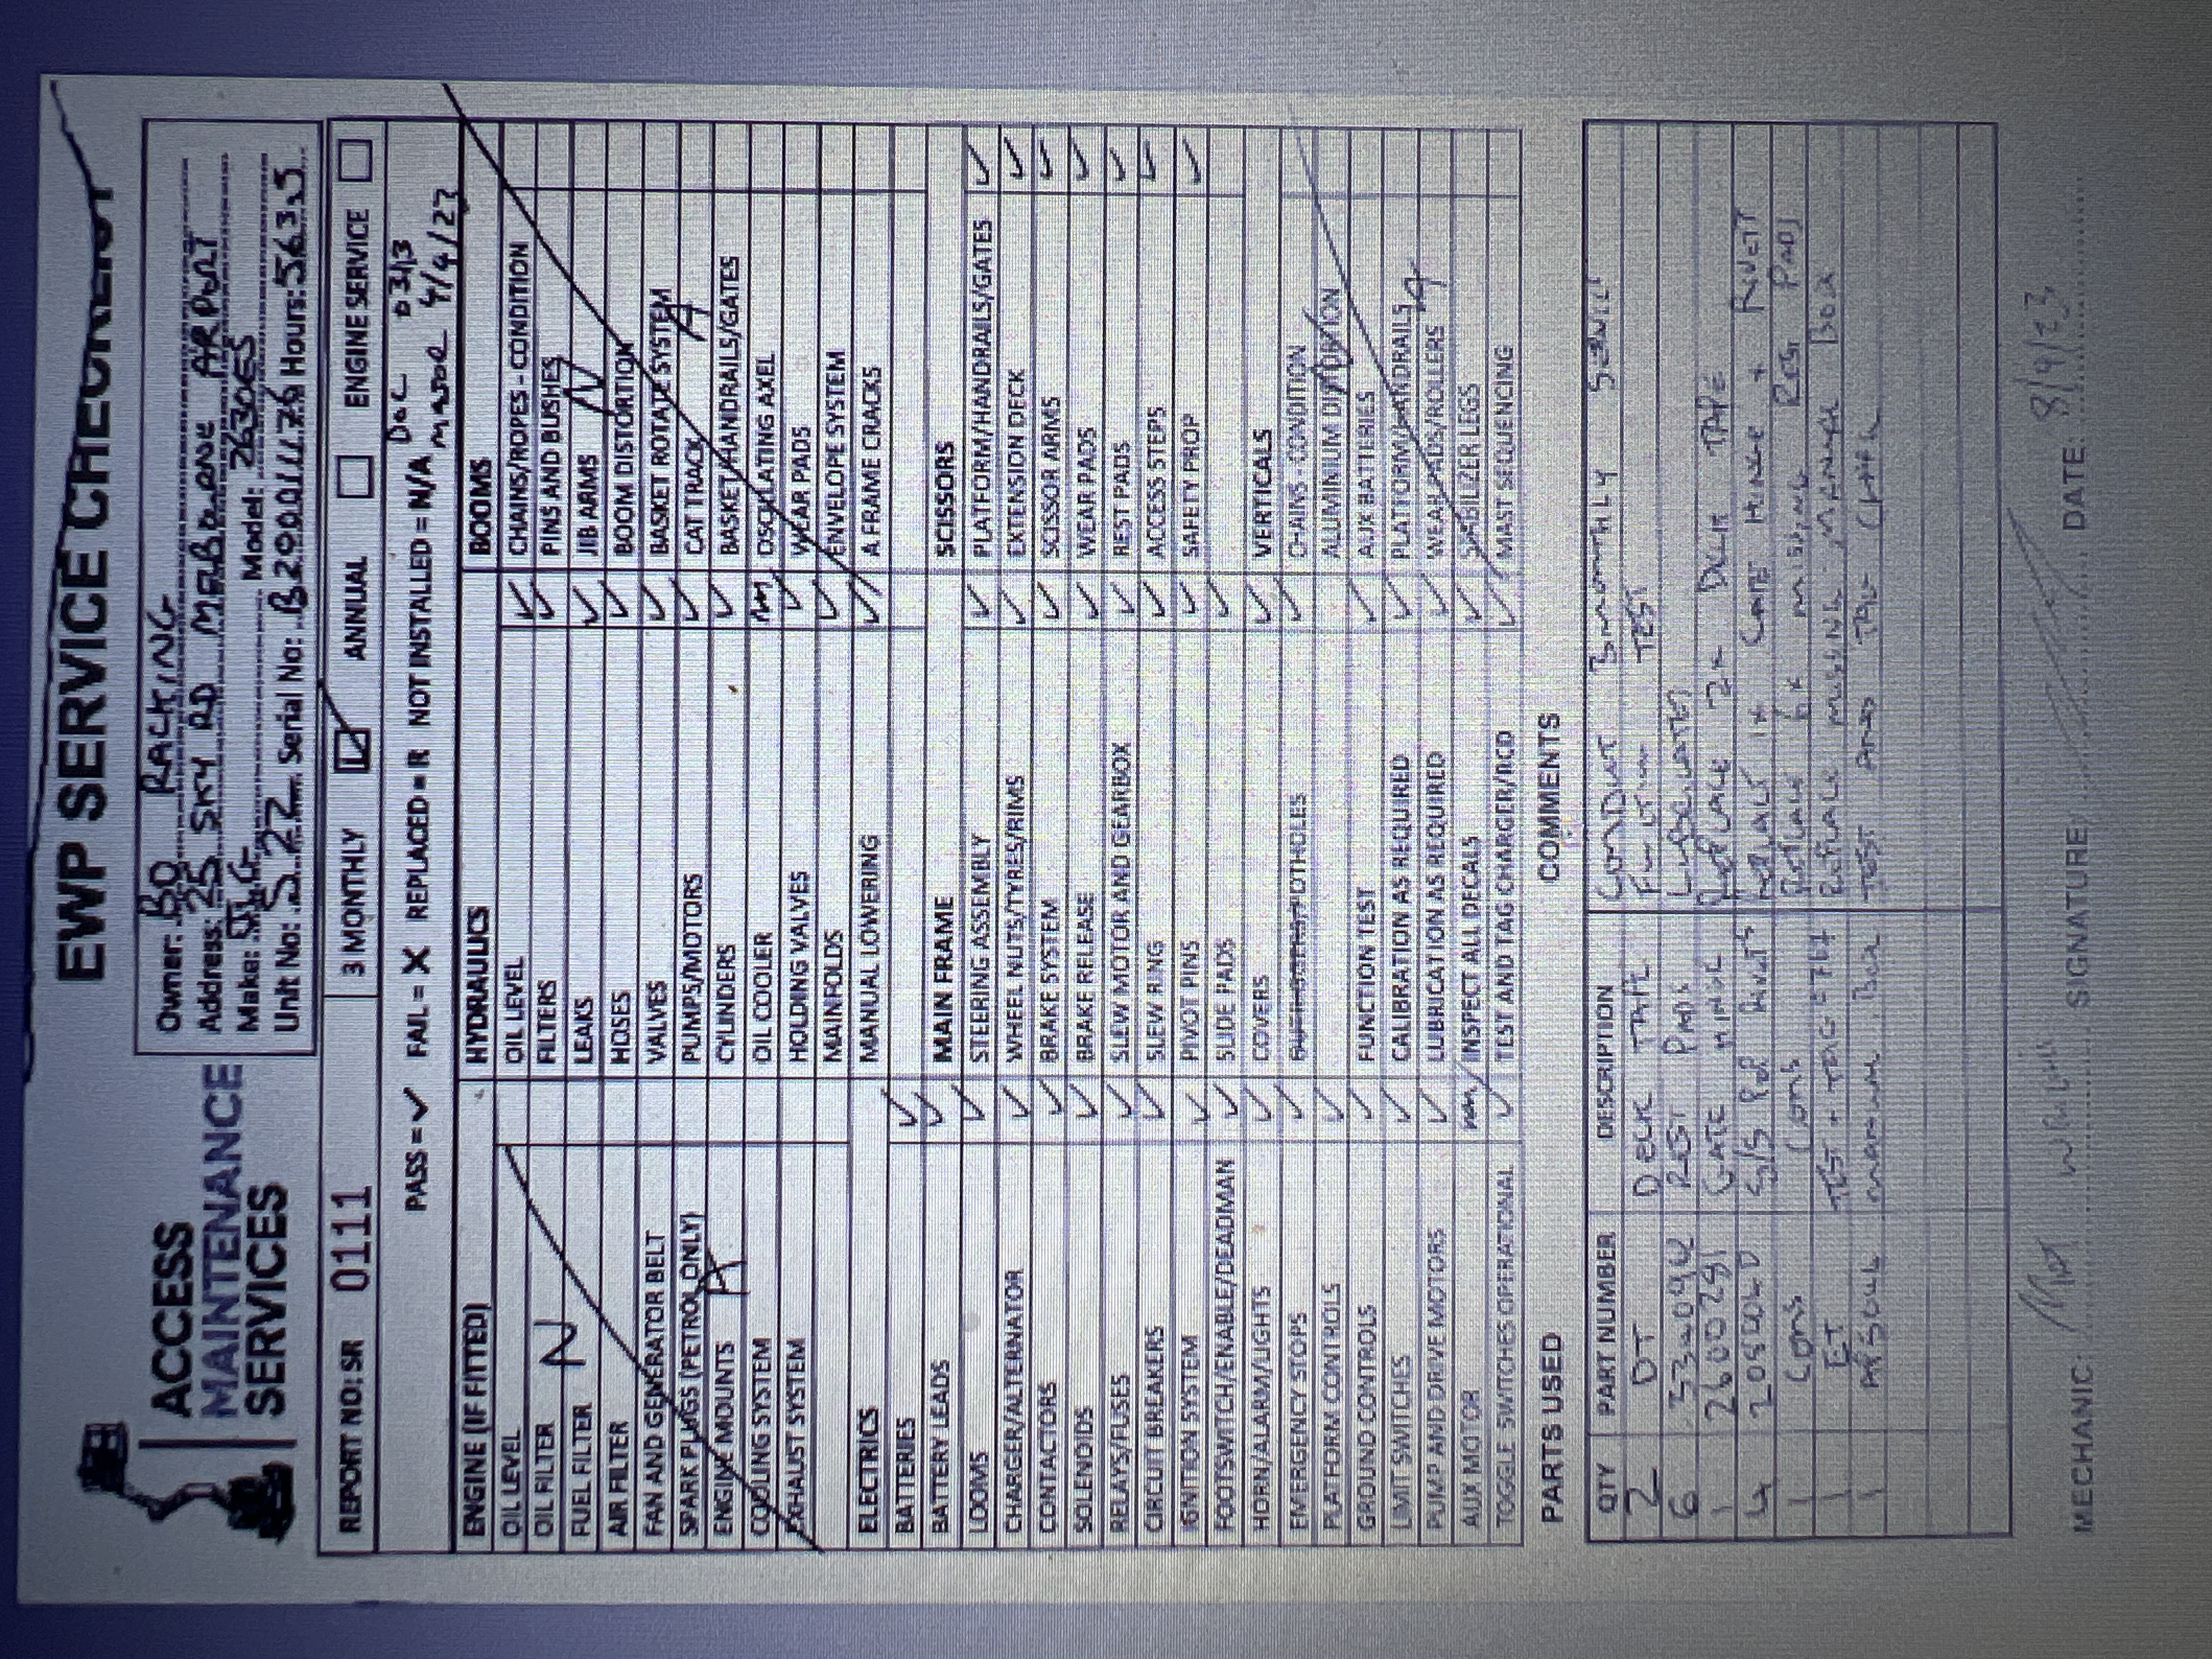 EWP SERVICE CHECKLIST
ACCESS
MAINTENANCE
SERVICES
Owner: BQ RACKING
Address: 25 SKY RD MELBOURNE AIRPORT
Make: JLG Model: 2630ES
Unit No: S22 Serial No: B200011176 Hours: 563.5
REPORT NO: SR 0111
3 MONTHLY
ANNUAL
ENGINE SERVICE
PASS = ✓ FAIL = X REPLACED = R NOT INSTALLED = N/A
DEC 0313
4/4/23
ENGINE (IF FITTED)
OIL LEVEL
OIL FILTER
FUEL FILTER
AIR FILTER
FAN AND GENERATOR BELT
SPARK PLUGS (PETROL ONLY)
ENGINE MOUNTS
COOLING SYSTEM
EXHAUST SYSTEM
N A
ELECTRICS
BATTERIES ✓
BATTERY LEADS ✓
LOOMS ✓
CHARGER/ALTERNATOR ✓
CONTACTORS ✓
SOLENOIDS ✓
RELAYS/FUSES ✓
CIRCUIT BREAKERS ✓
IGNITION SYSTEM ✓
FOOTSWITCH/ENABLE/DEADMAN ✓
HORN/ALARM/LIGHTS ✓
EMERGENCY STOPS ✓
PLATFORM CONTROLS ✓
GROUND CONTROLS ✓
LIMIT SWITCHES ✓
PUMP AND DRIVE MOTORS ✓
AUX MOTOR N/A
TOGGLE SWITCHES OPERATIONAL ✓
HYDRAULICS
OIL LEVEL ✓
FILTERS ✓
LEAKS ✓
HOSES ✓
VALVES ✓
PUMPS/MOTORS ✓
CYLINDERS ✓
OIL COOLER N/A
HOLDING VALVES ✓
MAINFOLDS ✓
MANUAL LOWERING ✓
MAIN FRAME
STEERING ASSEMBLY ✓
WHEEL NUTS/TYRES/RIMS ✓
BRAKE SYSTEM ✓
BRAKE RELEASE ✓
SLEW MOTOR AND GEARBOX ✓
SLEW RING ✓
PIVOT PINS ✓
SLIDE PADS ✓
COVERS ✓
POTHOLES ✓
FUNCTION TEST ✓
CALIBRATION AS REQUIRED ✓
LUBRICATION AS REQUIRED ✓
INSPECT ALL DECALS ✓
TEST AND TAG CHARGER/RCD ✓
BOOMS
CHAINS/ROPES - CONDITION
PINS AND BUSHES
JIB ARMS
BOOM DISTORTION
BASKET ROTATE SYSTEM
CAT TRACK
BASKET/HANDRAILS/GATES
OSCILATING AXEL
WEAR PADS
ENVELOPE SYSTEM
A FRAME CRACKS
N A
SCISSORS
PLATFORM/HANDRAILS/GATES ✓
EXTENSION DECK ✓
SCISSOR ARMS ✓
WEAR PADS ✓
REST PADS ✓
ACCESS STEPS ✓
SAFETY PROP ✓
VERTICALS
CHAINS - CONDITION
ALUMINIUM DISTORTION
AUX BATTERIES
PLATFORM/HANDRAILS
WEAR PADS/ROLLERS
STABILIZER LEGS
MAST SEQUENCING
N A
PARTS USED
COMMENTS
QTY PART NUMBER DESCRIPTION
2 DT DECK TAPE
6 REST PADS
1 2600281 GATE HINGE
4 S/S POP RIVETS
1 CONS CONS
1 ET TEST + TAG
1 MANUAL BOX
CONDUCT 3 MONTHLY SERVICE
FUNCTION TEST
LUBRICATED
REPLACE 2x DECK TAPE
REPLACE 1x GATE HINGE + RIVETS
REPLACE 6x MISSING REST PADS
REPLACE MISSING MANUAL BOX
TEST AND TAG
MECHANIC: SIGNATURE: DATE: 8/9/23